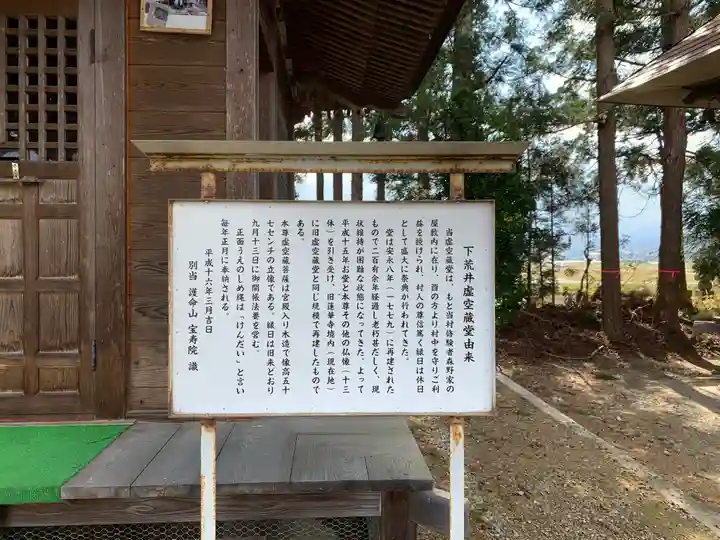 下荒井虚空蔵堂由来
当虚空蔵堂は、もと当村修験者森野家の
屋敷内に在り、酉の方より村中を守りご利
益を授けられ、村人の尊信篤く縁日は休日
として盛大に祭典が行われてきた。
堂は安永八年（一七七九）に再建された
もので二百有余年経過し老朽甚だしく、現
状維持が困難な状態になってきた。よって
平成十五年お堂と本尊その他の仏像（十三
体）を引き受け、旧蓮華寺境内（現在地）
に旧虚空蔵堂と同じ規模で再建したもので
ある。
本尊虚空蔵菩薩は宮殿入り木造で像高五十
七センチの立像である。縁日は旧来どおり
九月十三日に御開帳法要を営む。
正面うえのしめ縄は「けんだい」と言い
毎年正月に奉納される。
平成十六年三月吉日
別当 護命山 宝寿院 識